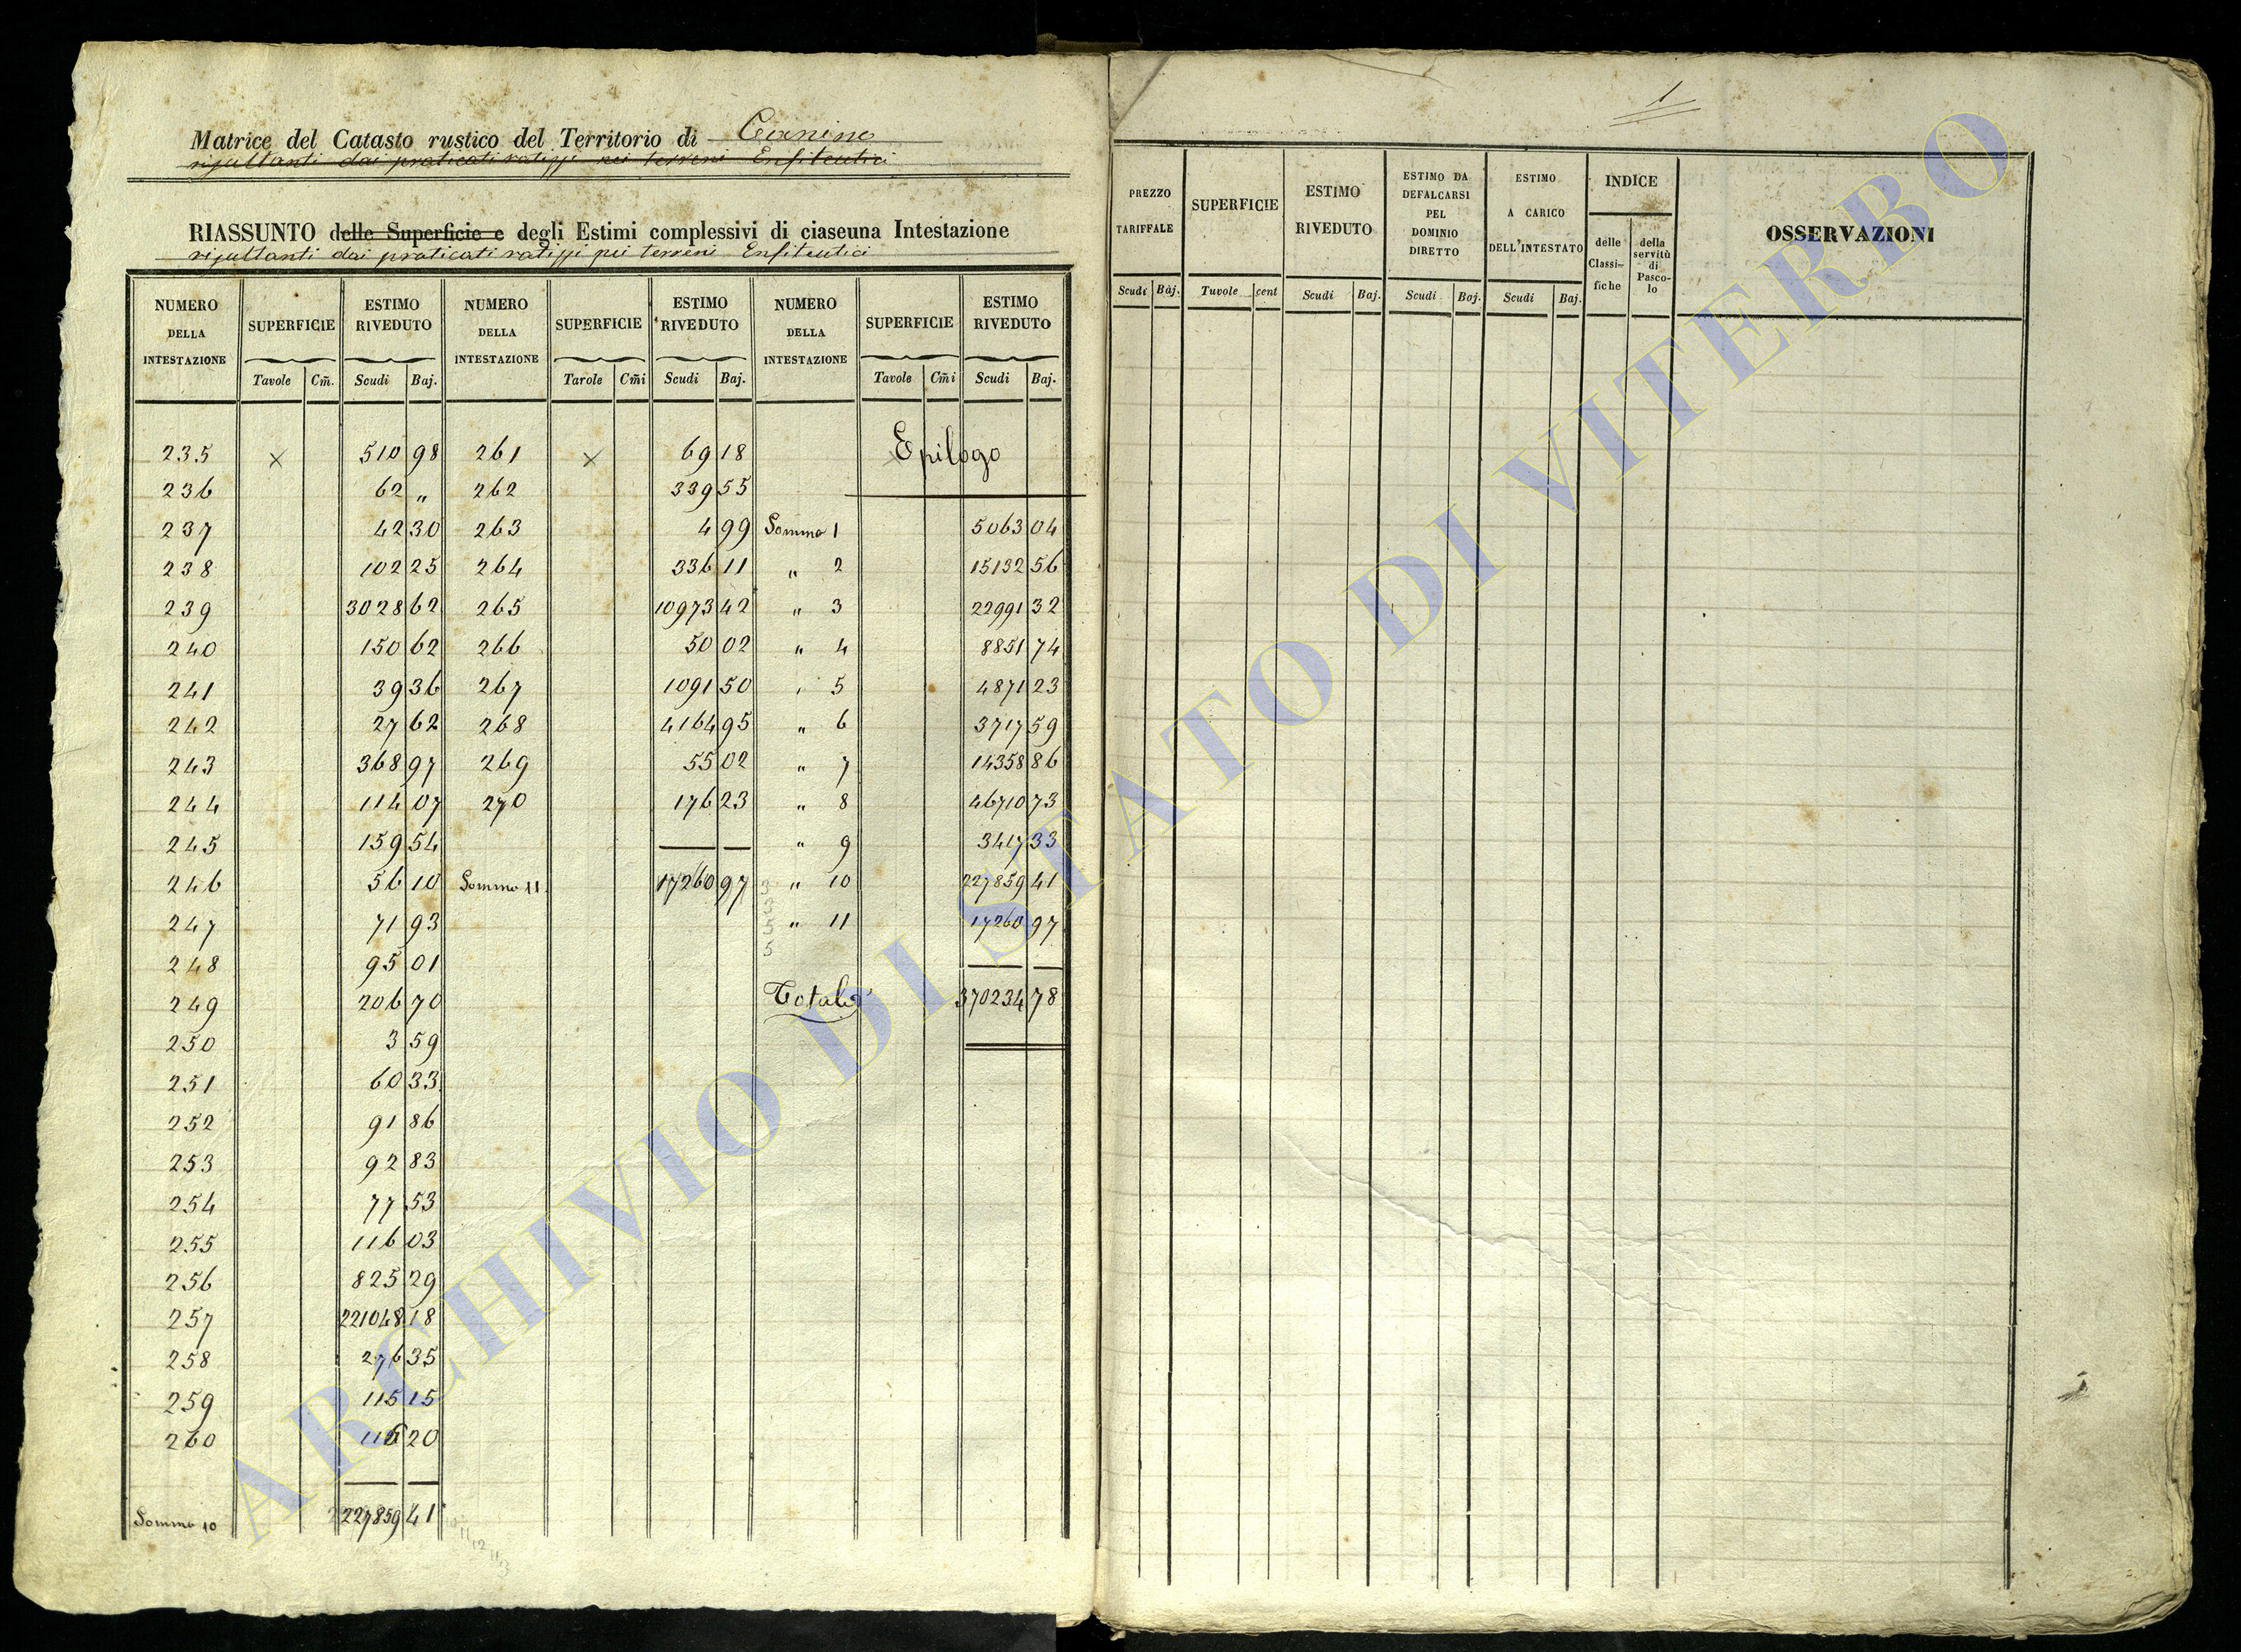 Matrice del Catasto rustico del Territorio di Canino
risultanti dai praticati ratizzi nei terreni Enfiteutici
RIASSUNTO delle Superficie e degli Estimi complessivi di ciaseuna Intestazione
risultanti dai praticati ratizzi pei terreni Enfiteutici
NUMERO DELLA INTESTAZIONE SUPERFICIE ESTIMO RIVEDUTO NUMERO DELLA INTESTAZIONE SUPERFICIE ESTIMO RIVEDUTO NUMERO DELLA INTESTAZIONE SUPERFICIE ESTIMO RIVEDUTO
Tavole Cm̃. Scudi Baj. Tavole Cm̃i Scudi Baj. Tavole Cm̃i Scudi Baj.
235 × 510 98 261 × 69 18 Epilogo
236 62 „ 262 339 55
237 42 30 263 4 99 Somma 1 5063 04
238 102 25 264 336 11 „ 2 15132 56
239 3028 62 265 10973 42 „ 3 22991 32
240 150 62 266 50 02 „ 4 8851 74
241 39 36 267 1091 50 „ 5 4871 23
242 27 62 268 4164 95 „ 6 3717 59
243 368 97 269 55 02 „ 7 14358 86
244 114 07 270 176 23 „ 8 46710 73
245 159 54 „ 9 3417 33
246 56 10 Somma 11 17260 97 „ 10 227859 41
247 71 93 „ 11 17260 97
248 95 01
249 206 70 Totale 370234 78
250 3 59
251 60 33
252 91 86
253 92 83
254 77 53
255 116 03
256 825 29
257 221048 18
258 276 35
259 115 15
260 20
Somma 10 227859 41
1
PREZZO TARIFFALE SUPERFICIE ESTIMO RIVEDUTO ESTIMO DA DEFALCARSI PEL DOMINIO DIRETTO ESTIMO A CARICO DELL'INTESTATO INDICE OSSERVAZIONI
delle Classifiche della servitù di Pascolo
Scudi Baj. Tuvole cent Scudi Baj. Scudi Baj. Scudi Baj.
ARCHIVIO DI STATO DI VITERBO